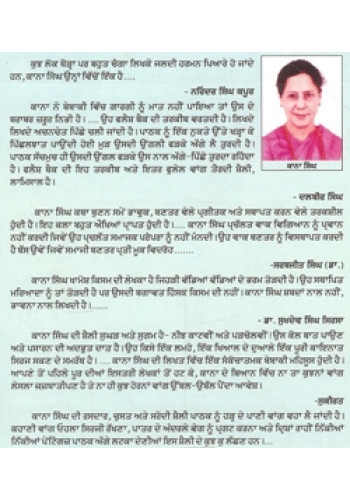 ਕੁਝ ਲੋਕ ਥੋੜ੍ਹਾ ਪਰ ਬਹੁਤ ਚੰਗਾ ਲਿਖਕੇ ਜਲਦੀ ਹਰਮਨ ਪਿਆਰੇ ਹੋ ਜਾਂਦੇ
ਹਨ, ਕਾਨਾ ਸਿੰਘ ਉਨ੍ਹਾਂ ਵਿੱਚੋਂ ਇੱਕ ਹੈ....
- ਨਰਿੰਦਰ ਸਿੰਘ ਕਪੂਰ
ਕਾਨਾ ਨੇ ਬੇਬਾਕੀ ਵਿੱਚ ਗਾਰਗੀ ਨੂੰ ਮਾਤ ਨਹੀਂ ਪਾਇਆ ਤਾਂ ਉਸ ਦੇ
ਬਰਾਬਰ ਜ਼ਰੂਰ ਨਿਭੀ ਹੈ।.... ਉਹ ਫਲੈਸ਼ ਬੈਕ ਦੀ ਤਰਕੀਬ ਵਰਤਦੀ ਹੈ। ਲਿਖਦੇ
ਲਿਖਦੇ ਅਚਨਚੇਤ ਪਿੱਛੇ ਚਲੀ ਜਾਂਦੀ ਹੈ। ਪਾਠਕ ਨੂੰ ਇੱਕ ਨੁਕਤੇ ਉੱਤੇ ਖੜ੍ਹਾ ਕੇ
ਪਿੱਛਲਝਾਤ ਪਾਉਂਦੀ ਹੋਈ ਮੁੜ ਉਸਦੀ ਉਂਗਲੀ ਫੜਕੇ ਅੱਗੇ ਲੈ ਤੁਰਦੀ ਹੈ।
ਪਾਠਕ ਸੱਚਮੁਚ ਹੀ ਉਸਦੀ ਉਂਗਲ ਫੜਕੇ ਉਸ ਨਾਲ ਅੱਗੇ-ਪਿੱਛੇ ਤੁਰਦਾ ਰਹਿੰਦਾ
ਹੈ। ਫਲੈਸ਼ ਬੈਕ ਦੀ ਇਹ ਤਰਕੀਬ ਅਤੇ ਇਤਰ ਫੁਲੇਲ ਵਾਂਗ ਤੈਰਦੀ ਸ਼ੈਲੀ,
ਲਾਮਿਸਾਲ ਹੈ।
ਕਾਨਾ ਸਿੰਘ
- ਦਲਬੀਰ ਸਿੰਘ
ਕਾਨਾ ਸਿੰਘ ਕਥਾ ਬੁਣਨ ਸਮੇਂ ਭਾਵੁਕ, ਬਣਤਰ ਵੇਲੇ ਪ੍ਰਗੀਤਕ ਅਤੇ ਸਥਾਪਤ ਕਰਨ ਵੇਲੇ ਤਰਕਸ਼ੀਲ
ਹੁੰਦੀ ਹੈ। ਇਹ ਕਲਾ ਬਹੁਤ ਔਖਿਆਂ ਪ੍ਰਾਪਤ ਹੁੰਦੀ ਹੈ। .... ਕਾਨਾ ਸਿੰਘ ਪ੍ਰਚੱਲਤ ਵਾਕ ਵਿਗਿਆਨ ਨੂੰ ਪ੍ਰਵਾਨ
ਨਹੀਂ ਕਰਦੀ ਜਿਵੇਂ ਉਹ ਪ੍ਰਚੱਲਤ ਸਮਾਜਕ ਪਰੰਪਰਾ ਨੂੰ ਨਹੀਂ ਮੰਨਦੀ। ਉਹ ਵਾਕ ਬਣਤਰ ਨੂੰ ਵਿਸਥਾਪਤ ਕਰਦੀ
ਹੈ ਬੱਸ ਉਵੇਂ ਜਿਵੇਂ ਸਮਾਜੀ ਬਣਤਰ ਪ੍ਰਤੀ ਮੂਕ ਵਿਦਰੋਹ .......
-ਸਰਬਜੀਤ ਸਿੰਘ (ਡਾ.)
ਕਾਨਾ ਸਿੰਘ ਖਾਮੋਸ਼ ਕਿਸਮ ਦੀ ਲੇਖਕਾ ਹੈ ਜਿਹੜੀ ਵੱਡਿਆਂ ਵੱਡਿਆਂ ਦੇ ਭਰਮ ਤੋੜਦੀ ਹੈ। ਉਹ ਸਥਾਪਿਤ
ਮਰਿਆਦਾ ਨੂੰ ਤਾਂ ਤੋੜਦੀ ਹੈ ਪਰ ਉਸਦੀ ਬਗਾਵਤ ਹਿੰਸਕ ਕਿਸਮ ਦੀ ਨਹੀਂ। ਕਾਨਾ ਸਿੰਘ ਸ਼ਬਦਾਂ ਨਾਲ ਨਹੀਂ,
ਭਾਵਨਾ ਨਾਲ ਲਿਖਦੀ ਹੈ।.....
- ਡਾ. ਸੁਖਦੇਵ ਸਿੰਘ ਸਿਰਸਾ
ਕਾਨਾ ਸਿੰਘ ਦੀ ਸ਼ੈਲੀ ਸੁਘੜ ਅਤੇ ਸੁਗਮ ਹੈ- ਨੀਝ ਕਾਟਵੀਂ ਅਤੇ ਪੜਚੋਲਵੀਂ। ਉਸ ਕੋਲ ਬਾਤ ਪਾਉਣ
ਅਤੇ ਪਸਾਰਨ ਦੀ ਅਦਭੁਤ ਦਾਤ ਹੈ। ਉਹ ਕਿਸੇ ਇੱਕ ਲਮਹੇ, ਇੱਕ ਖ਼ਿਆਲ ਦੇ ਦੁਆਲੇ ਇੱਕ ਪੂਰੀ ਕਾਇਨਾਤ
ਸਿਰਜ ਸਕਣ ਦੇ ਸਮਰੱਥ ਹੈ। .... ਕਾਨਾ ਸਿੰਘ ਦੀ ਲਿਖਤ ਵਿੱਚ ਇੱਕ ਸੰਕੋਚਾਤਮਕ ਬੇਬਾਕੀ ਮਹਿਸੂਸ ਹੁੰਦੀ ਹੈ।
ਆਪਣੇ ਤੋਂ ਪਹਿਲੇ ਪੂਰ ਦੀਆਂ ਇਸਤਰੀ ਲੇਖਕਾਂ ਤੋਂ ਹਟ ਕੇ, ਕਾਨਾ ਦੇ ਬਿਆਨ ਵਿੱਚ ਨਾ ਤਾਂ ਕੁਝਨਾਂ ਵਾਂਗ
ਲੇਸਲਾ ਜਜ਼ਬਾਤੀਪਣ ਹੈ ਤੇ ਨਾ ਹੀ ਕੁਝ ਹੋਰਨਾਂ ਵਾਂਗ ਉੱਬਲ-ਉਬੱਲ ਪੈਂਦਾ ਆਵੇਗ।
-ਸੁਕੀਰਤ
ਕਾਨਾ ਸਿੰਘ ਦੀ ਰਸਦਾਰ, ਚੁਸਤ ਅਤੇ ਸਰੋਦੀ ਸ਼ੈਲੀ ਪਾਠਕ ਨੂੰ ਹੜ੍ਹ ਦੇ ਪਾਣੀ ਵਾਂਗ ਵਹਾ ਲੈ ਜਾਂਦੀ ਹੈ।
ਕਹਾਣੀ ਵਾਂਗ ਓਹਲਾ ਸਿਰਜੀ ਰੱਖਣਾ, ਪਾਤਰ ਦੇ ਅੰਦਰਲੇ ਵੇਗ ਨੂੰ ਪ੍ਰਗਟ ਕਰਨਾ ਅਤੇ ਦ੍ਰਿਸ਼ਾਂ ਰਾਹੀਂ ਨਿੱਕੀਆਂ
ਨਿੱਕੀਆਂ ਪੇਂਟਿੰਗਜ਼ ਪਾਠਕ ਅੱਗੇ ਲਟਕਾ ਦੇਣੀਆਂ ਇਸ ਸ਼ੈਲੀ ਦੇ ਕੁਝ ਕੁ ਲੱਛਣ ਹਨ।....